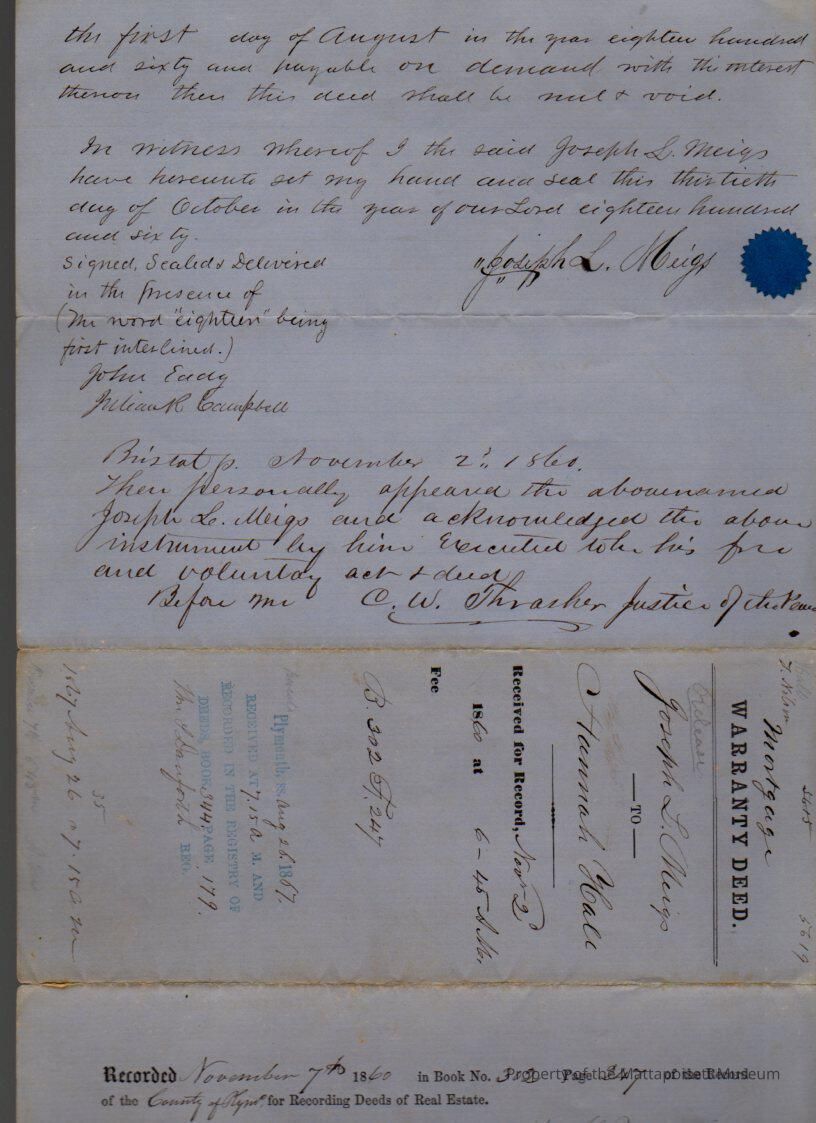 the first day of August in the year eighteen hundred
and sixty and payable on demand with the interest
thereon then this deed shall be null & void.
In witness whereof I the said Joseph L. Meigs
have hereunto set my hand and seal this thirtieth
day of October in the year of our Lord eighteen hundred
and sixty.
Signed, Sealed & Delivered
in the presence of
(The word "eighteen" being
first interlined.)
John Eddy
Campbell
Joseph L. Meigs
Bristol November 2d, 1860.
Then personally appeared the abovenamed
Joseph L. Meigs and acknowledged the above
instrument by him Executed to be his free
and voluntary act & deed
Before me C. W. Thrasher Justice of the Peace
Mortgage
WARRANTY DEED.
Release
Joseph L. Meigs
—TO—
Hannah Hall
Received for Record, Nov 2d
1860 at 6-45 A.M.
Fee
B. 302 F. 247
Plymouth, ss. Aug 26. 1867.
RECEIVED AT 7.15 A M. AND
RECORDED IN THE REGISTRY OF
DEEDS, BOOK 344 PAGE 179.
Wm. S. Danforth REG.
35
1867 Aug 26 7.15 a m
Recorded November 7th 1860 in Book No. 302 Page 247 of the Records
of the County of Plym. for Recording Deeds of Real Estate.
Property of the Mattapoisett Museum